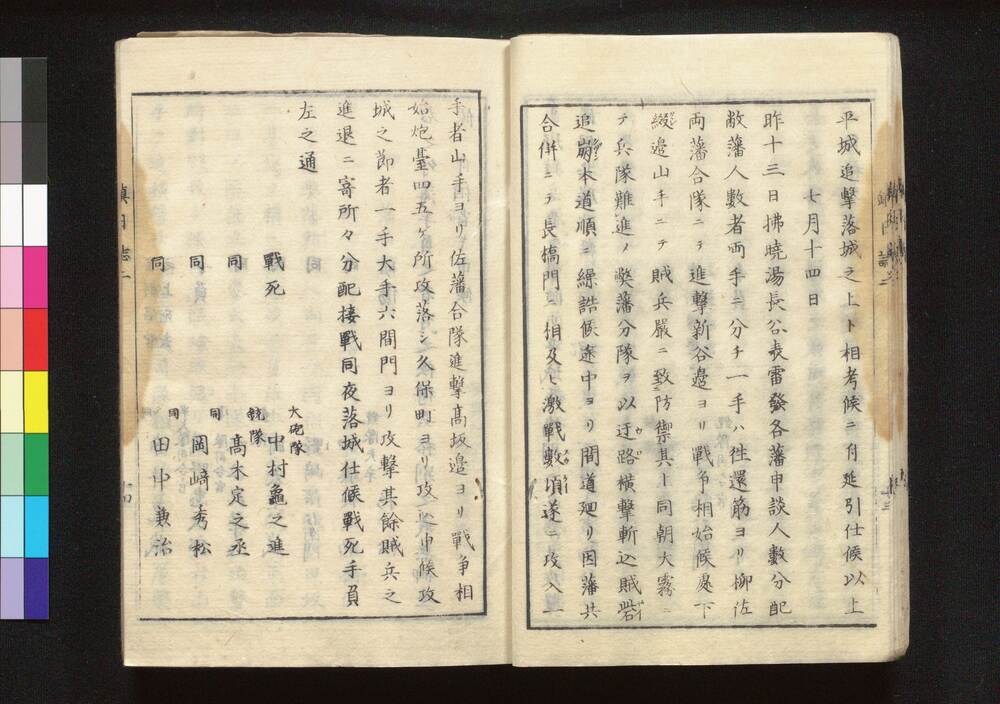 平城追撃落城之上ト相考候ニ付延引仕候以上
七月十四日
昨十三日拂曉湯長谷表雷發各藩申談人數分配
敝藩人數者両手ニ分チ一手ハ徃還筋ヨリ柳佐
両藩合隊ニテ進撃新谷邉ヨリ戰争相始候處下
綴邉山手ニテ賊兵嚴ニ致防禦其上同朝大霧ニ
テ兵隊難進ノ敝藩分隊ヲ以迂路横撃斬込賊砦
追崩本道順ニ繰詰候途中ヨリ間道廻リ因藩共
合併ニテ長橋門ニ相及ヒ激戰數頃遂ニ攻入一
手者山手ヨリ佐藩合隊進撃髙坂邉ヨリ戰争相
始炮䑓四五ケ所攻落シ久保町ヨリ攻込申候攻
城之節者一手大手六間門ヨリ攻撃其餘賊兵之
進退ニ寄所々分配接戰同夜落城仕候戰死手負
左之通
戰死 大砲隊 中村龜之進
同 銃隊 髙木定之丞
同 同 岡﨑秀松
同 同 田中兼治
鎮日誌二